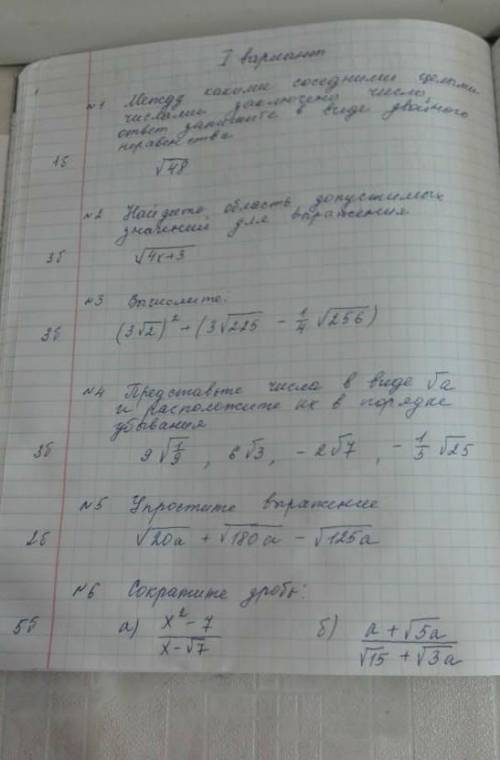 I вариант
№1 Между какими соседними целыми
числами заключено число
ответ запишите в виде двойного
неравенства
1б √48
№2 Найдите область допустимых
значений для выражения
3б √4x+3
№3 Вычислите:
3б (3√2)² + (3√225 - 1/4 √256)
№4 Представьте числа в виде √a
и расположите их в порядке
убывания
3б 9√1/9 , 6√3 , -2√7 , -1/5 √25
№5 Упростите выражение
2б √20a + √180a - √125a
№6 Сократите дробь:
5б а) x² - 7 / x - √7 б) a + √5a / √15 + √3a